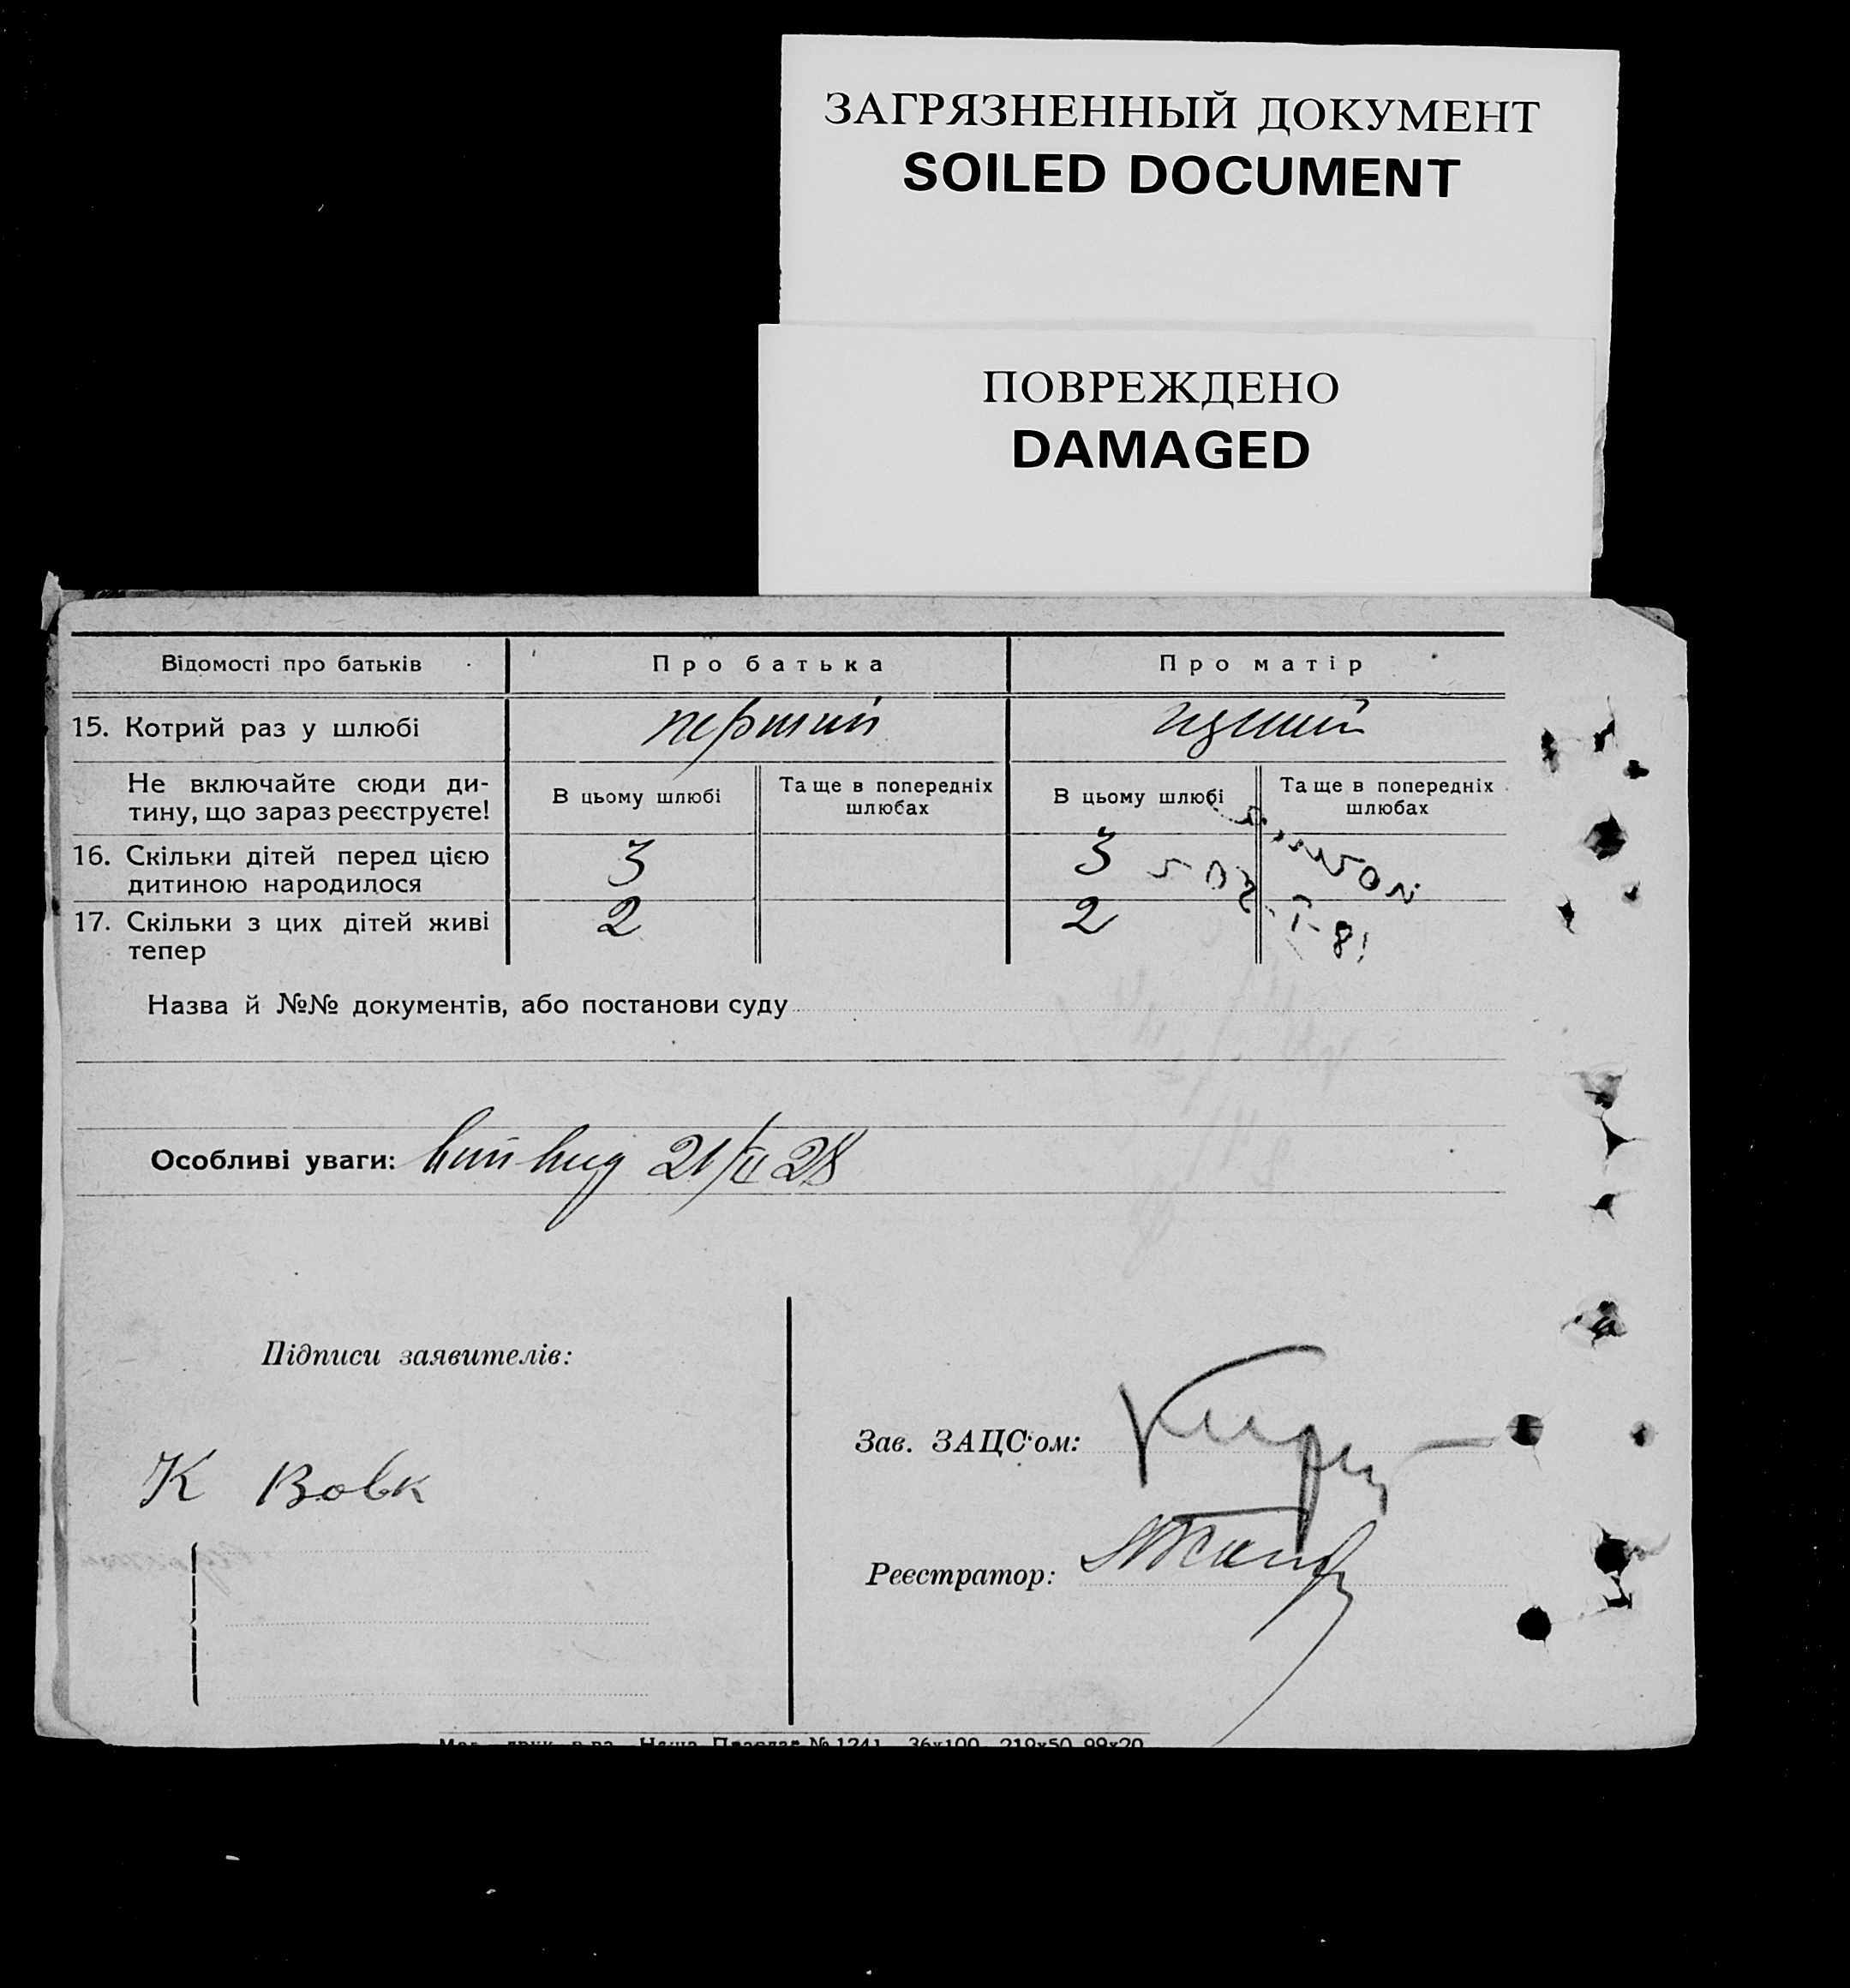 ЗАГРЯЗНЕННЫЙ ДОКУМЕНТ
SOILED DOCUMENT
ПОВРЕЖДЕНО
DAMAGED
Відомості про батьків Про батька Про матір
15. Котрий раз у шлюбі перший
Не включайте сюди ди-
тину, що зараз реєструєте!
В цьому шлюбі
Та ще в попередніх
шлюбах
В цьому шлюбі
Та ще в попередніх
шлюбах
16. Скільки дітей перед цією
дитиною народилося
3 3
17. Скільки з цих дітей живі
тепер
2 2
Назва й №№ документів, або постанови суду
Особливі уваги: 21/II 28
Підписи заявителів:
К Вовк
Зав. ЗАЦС'ом:
Реєстратор:
№ 1241 36х100